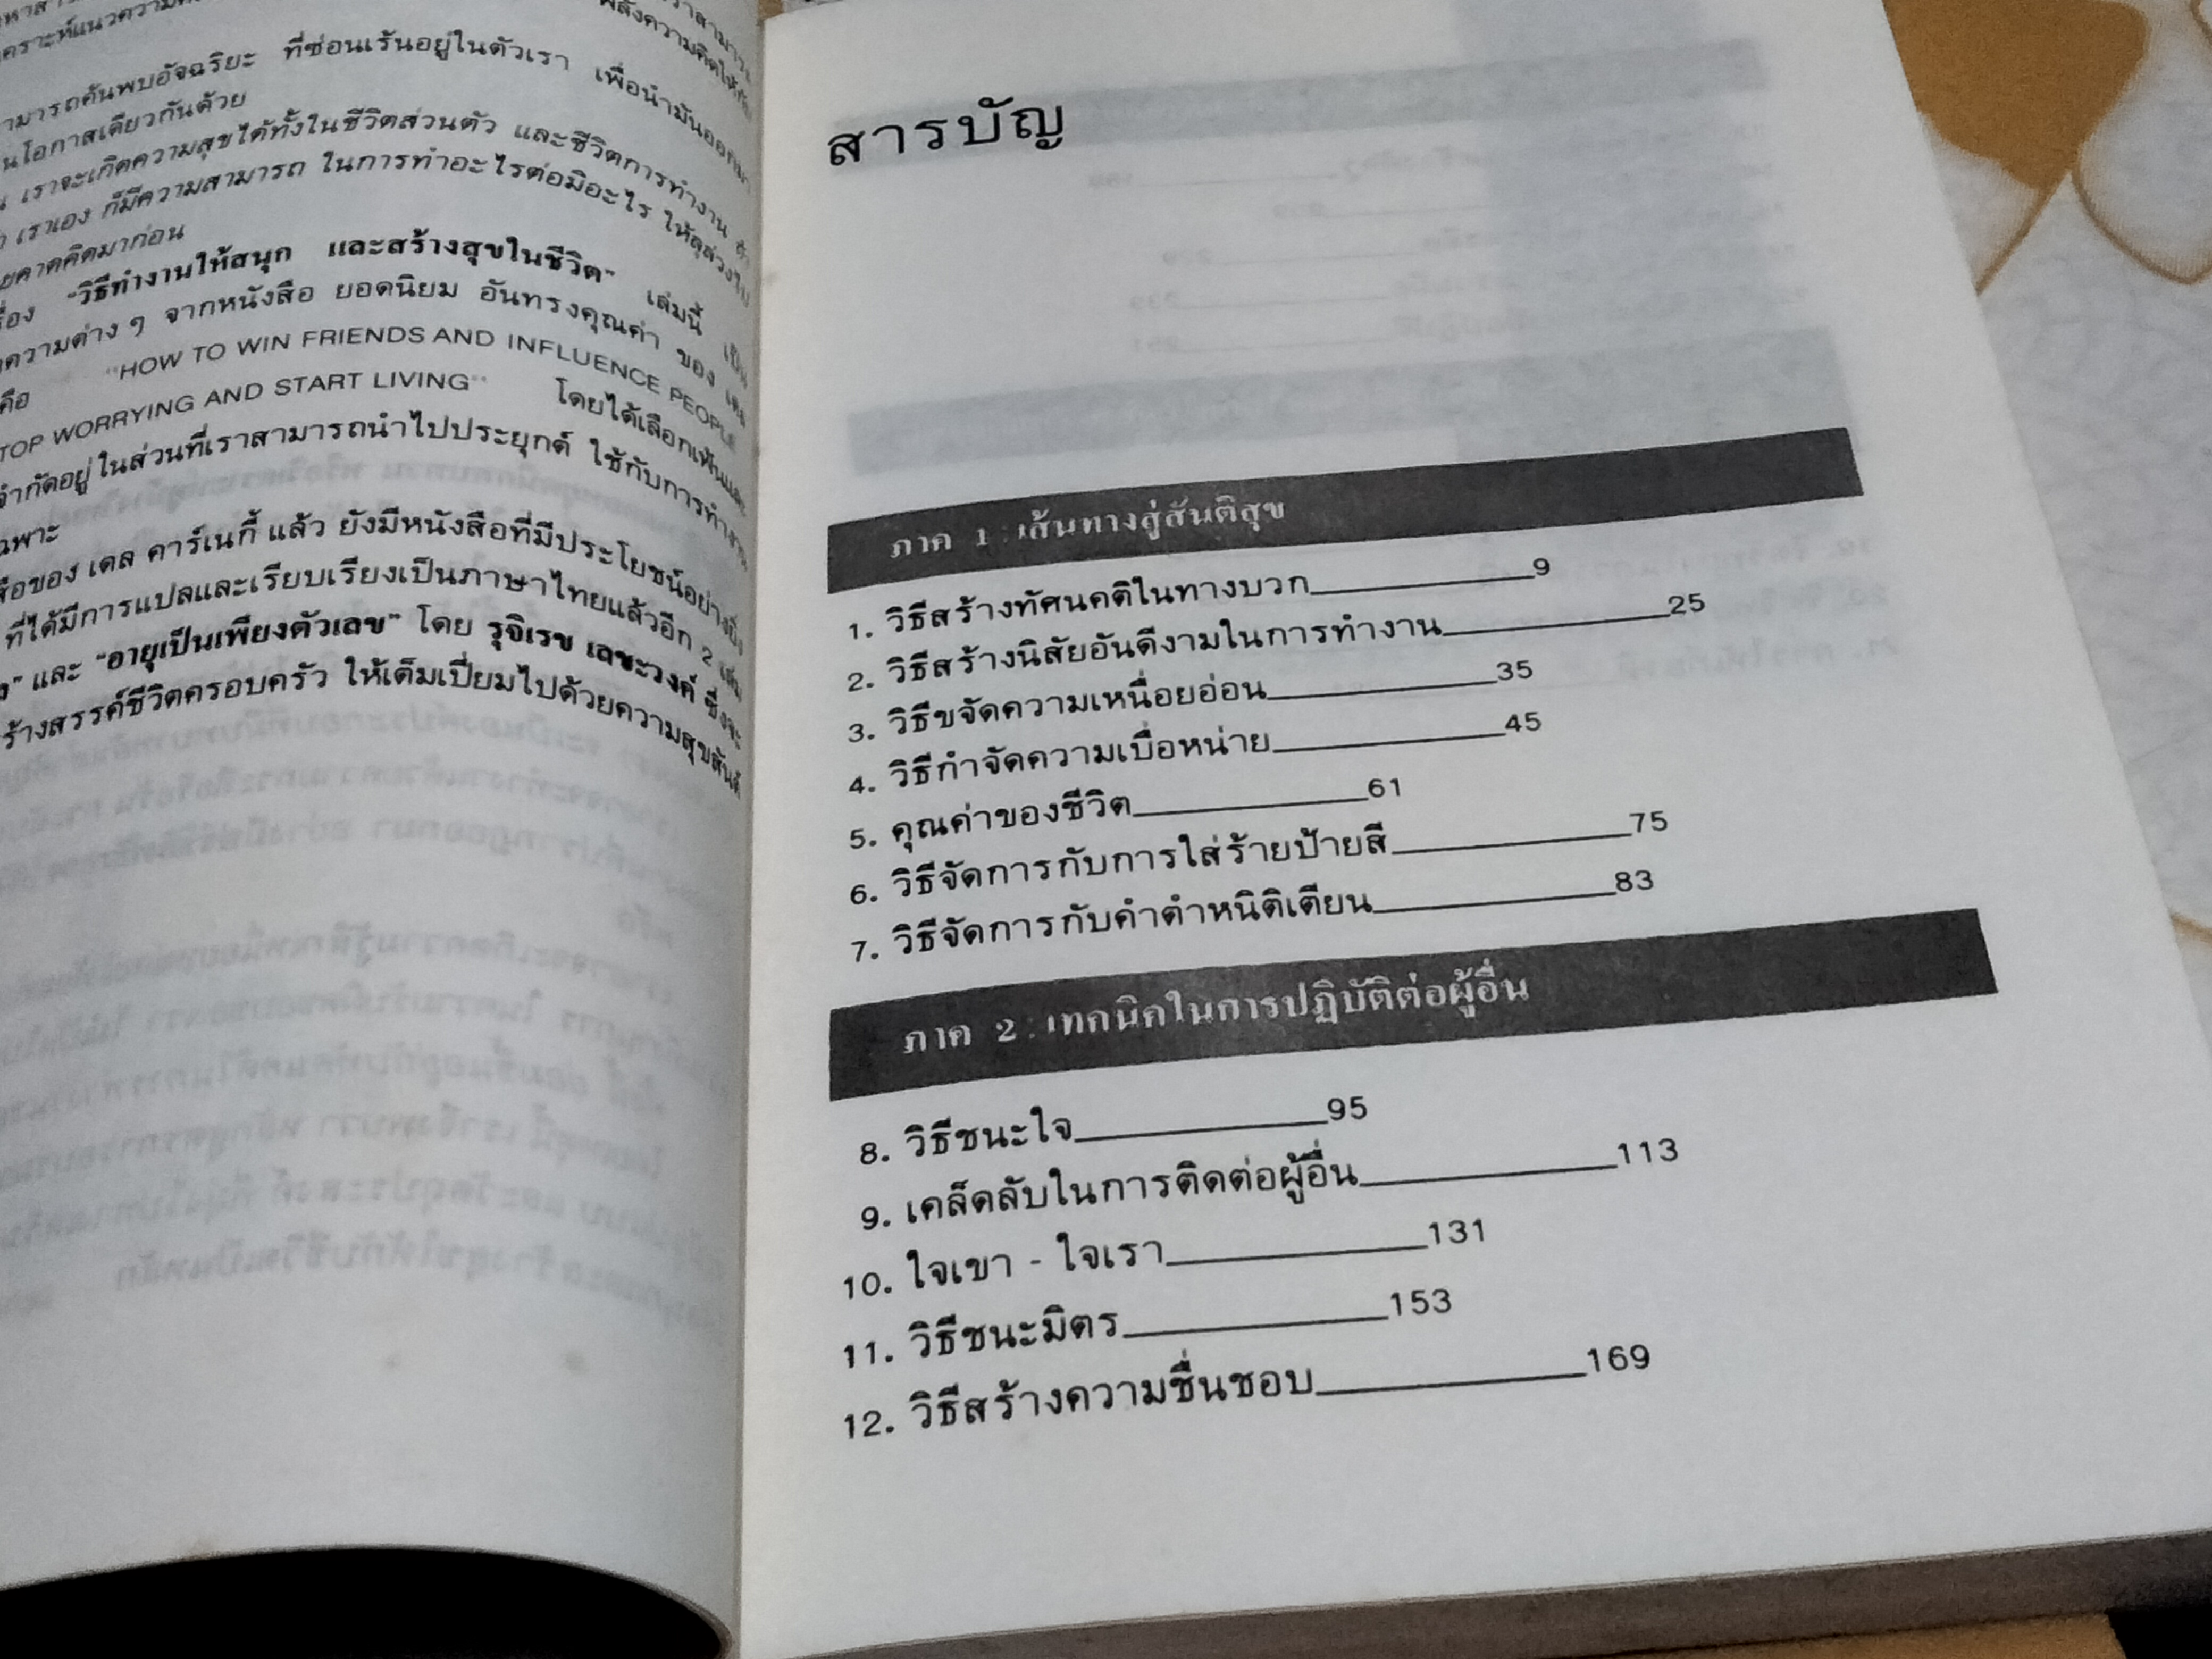 ามารถค้นพบอัจฉริยะ ที่ซ่อนเร้นอยู่ในตัวเรา เพื่อนำมันออกมา
นโอกาสเดียวกันด้วย
เราจะเกิดความสุขได้ทั้งในชีวิตส่วนตัว และชีวิตการทำงาน
เราเอง ก็มีความสามารถ ในการทำอะไรต่อมิอะไร ให้ลุล่วงไป
ยคาดคิดมาก่อน
รื่อง "วิธีทำงานให้สนุก และสร้างสุขในชีวิต" เล่มนี้ เป็น
ความต่าง ๆ จากหนังสือ ยอดนิยม อันทรงคุณค่า ของ เดล
คือ "HOW TO WIN FRIENDS AND INFLUENCE PEOPLE
TOP WORRYING AND START LIVING" โดยได้เลือกเฟ้นและ
จำกัดอยู่ในส่วนที่เราสามารถนำไปประยุกต์ ใช้กับการทำงาน
ฉพาะ
สือของ เดล คาร์เนกี้ แล้ว ยังมีหนังสือที่มีประโยชน์อย่างยิ่ง
ที่ได้มีการแปลและเรียบเรียงเป็นภาษาไทยแล้วอีก 2 เล่ม
" และ "อายุเป็นเพียงตัวเลข" โดย รุจิเรข เลขะวงศ์ ซึ่งจะ
ร้างสรรค์ชีวิตครอบครัว ให้เต็มเปี่ยมไปด้วยความสุขสันต์
สารบัญ
ภาค 1 : เส้นทางสู่สันติสุข
1. วิธีสร้างทัศนคติในทางบวก 9
2. วิธีสร้างนิสัยอันดีงามในการทำงาน 25
3. วิธีขจัดความเหนื่อยอ่อน 35
4. วิธีกำจัดความเบื่อหน่าย 45
5. คุณค่าของชีวิต 61
6. วิธีจัดการกับการใส่ร้ายป้ายสี 75
7. วิธีจัดการกับคำตำหนิติเตียน 83
ภาค 2 : เทคนิคในการปฏิบัติต่อผู้อื่น
8. วิธีชนะใจ 95
9. เคล็ดลับในการติดต่อผู้อื่น 113
10. ใจเขา - ใจเรา 131
11. วิธีชนะมิตร 153
12. วิธีสร้างความชื่นชอบ 169